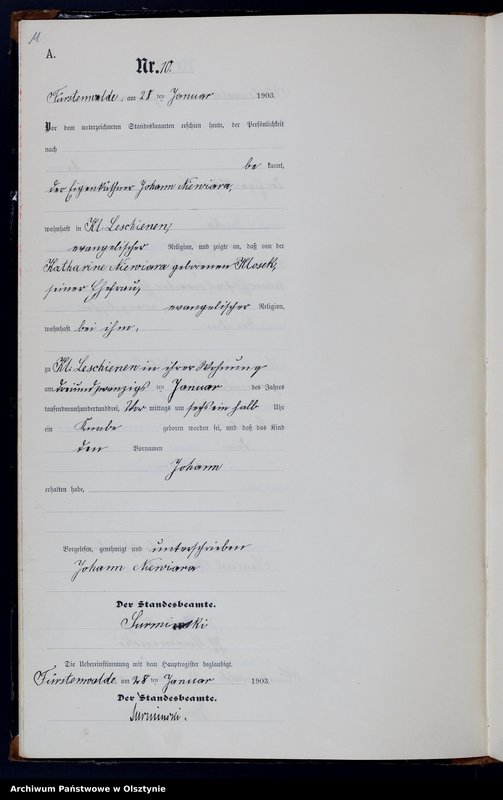 11
A.
Nr. 10.
Fürstenwalde, am 28 ten Januar 1903.
Vor dem unterzeichneten Standesbeamten erschien heute, der Persönlichkeit
nach
be kannt,
der Eigenkäthner Johann Niewiara,
wohnhaft in Kl. Leschienen,
evangelischer Religion, und zeigte an, daß von der
Katharine Niewiara geborenen Klosek,
seiner Ehefrau,
evangelischer Religion,
wohnhaft bei ihm,
zu Kl. Leschienen in ihrer Wohnung
am dreiundzwanzigs ten Januar des Jahres
tausendneunhundertunddrei, Vor mittags um sechs ein halb Uhr
ein Knabe geboren worden sei, und daß das Kind
den Vornamen
Johann
erhalten habe,
Vorgelesen, genehmigt und unterschrieben
Johann Niewiara
Der Standesbeamte.
Surminski
Die Uebereinstimmung mit dem Hauptregister beglaubigt.
Fürstenwalde, am 28 ten Januar 1903.
Der Standesbeamte.
Surminski.
Archiwum Państwowe w Olsztynie